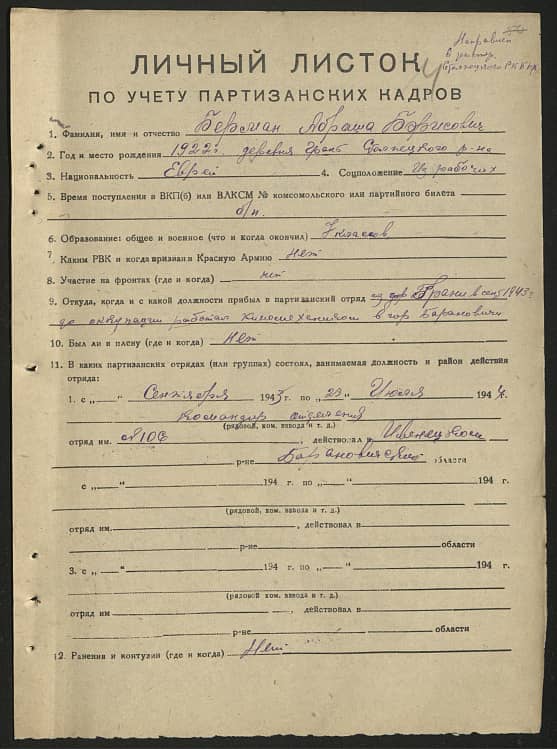 Направлен
в распор.
Столпецкого РККА
ЛИЧНЫЙ ЛИСТОК
ПО УЧЕТУ ПАРТИЗАНСКИХ КАДРОВ
1. Фамилия, имя и отчество Берман Абраша Борисович
2. Год и место рождения 1922г. деревня Столпецкого р-на
3. Национальность Еврей 4. Соцположение Из рабочих
5. Время поступления в ВКП(б) или ВЛКСМ № комсомольского или партийного билета
б/п.
6. Образование: общее и военное (что и когда окончил) 7 классов
7. Каким РВК и когда призван в Красную Армию Нет
8. Участие на фронтах (где и когда) нет
9. Откуда, когда и с какой должности прибыл в партизанский отряд из в сент 1943г
до оккупации работал киномехаником в гор Барановичи
10. Был ли в плену (где и когда) Нет
11. В каких партизанских отрядах (или группах) состоял, занимаемая должность и район действия
отряда:
1. с „ “ Сентября 1943 г. по „23“ Июля 1944 г.
Командир отделения
(рядовой, ком. взвода и т. д.)
отряд им. №106, действовал в Ивенецком
р-не Барановичской области
с „ “ 194 г. по „ “ 194 г.
(рядовой, ком. взвода и т. д.)
отряд им. , действовал в
р-не области
3. с „ “ 194 г. по „ “ 194 г.
(рядовой ком. взвода и т. д.)
отряд им , действовал в
р-не области
12. Ранения и контузии (где и когда) Нет